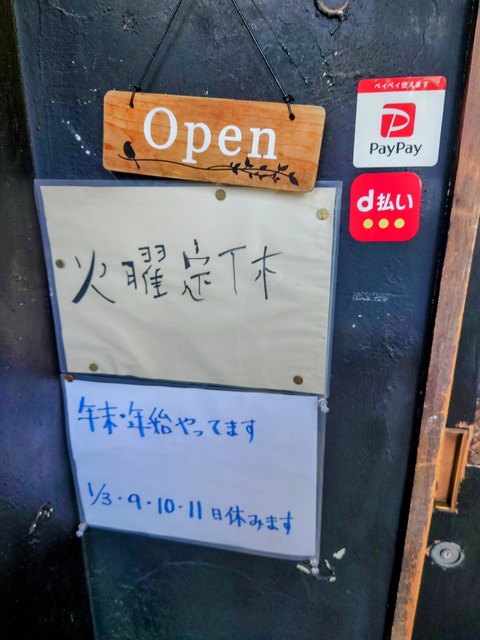 Open
ペイペイ使えます
PayPay
d払い
火曜定休
年末・年始やってます
1/3・9・10・11日休みます